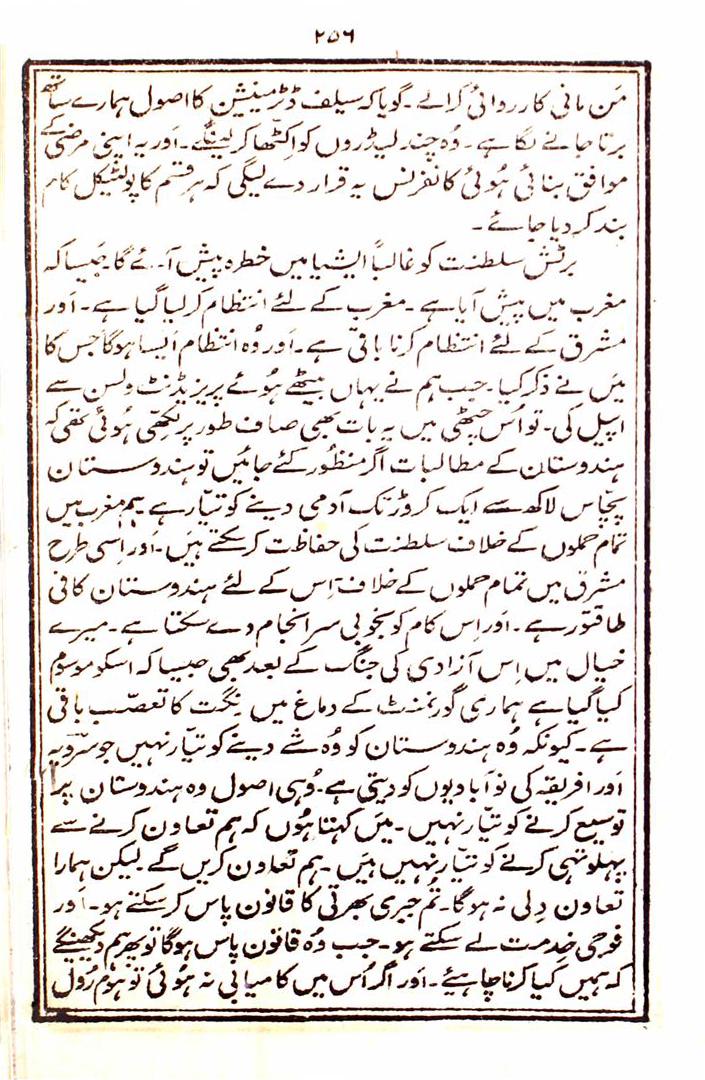 ۲۵۶
من مانی کارروائی کرالے۔ گویا کہ سیلف ڈٹرمینیشن کا اصول ہمارے ساتھ
برتا جانے لگا ہے۔ وُہ چند لیڈروں کو اکٹھا کر لینگے۔ اَور یہ اپنی مرضی کے
موافق بنائی ہُوئی کانفرنس یہ قرار دے لیگی کہ ہر قسم کا پولٹیکل کام
بند کر دیا جائے۔
برٹش سلطنت کو غالباً ایشیا میں خطرہ پیش آئے گا۔ جَیسا کہ
مغرب میں پیش آیا ہے۔ مغرب کے لئے انتظام کر لیا گیا ہے۔ اَور
مشرق کے لئے انتظام کرنا باقی ہے۔ اَور وُہ انتظام اَیسا ہوگا جس کا
میں نے ذکر کیا۔ جب ہم نے یہاں بیٹھے ہُوئے پریزیڈنٹ ولسن سے
اپیل کی۔ تو اُس چٹھی میں یہ بات بھی صاف طور پر لکھی ہُوئی تھی کہ
ہندوستان کے مطالبات اگر منظور کئے جائیں تو ہندوستان
پچاس لاکھ سے ایک کروڑ تک آدمی دینے کو تیّار ہے ہم مغرب میں
تمام حملوں کے خلاف سلطنت کی حفاظت کر سکتے ہیں۔ اَور اِسی طرح
مشرق میں تمام حملوں کے خلاف۔ اِس کے لئے ہندوستان کافی
طاقتور ہے۔ اَور اِس کام کو بخوبی سرانجام دے سکتا ہے۔ میرے
خیال میں اِس آزادی کی جنگ کے بعد بھی جیسا کہ اسکو موسوم
کیا گیا ہے ہماری گورنمنٹ کے دماغ میں رنگت کا تعصّب باقی
ہے۔ کیونکہ وُہ ہندوستان کو وُہ شے دینے کو تیّار نہیں جو سرویہ
اَور افریقہ کی نو آبادیوں کو دیتی ہے۔ وُہی اصول وہ ہندوستان پر
توسیع کرنے کو تیّار نہیں۔ میَں کہتا ہُوں کہ ہم تعاون کرنے سے
پہلوتہی کرنے کو تیّار نہیں ہیَں۔ ہم تعاون کریں گے۔ لیکن ہمارا
تعاون دِلی نہ ہوگا۔ تُم جبری بھرتی کا قانون پاس کر سکتے ہو۔ اَور
فوجی خِدمت لے سکتے ہو۔ جب وُہ قانون پاس ہوگا تو پھر ہم دیکھینگے
کہ ہمیں کیا کرنا چاہیئے۔ اَور اگر اُس میں کامیابی نہ ہُوئی تو ہوم رُول